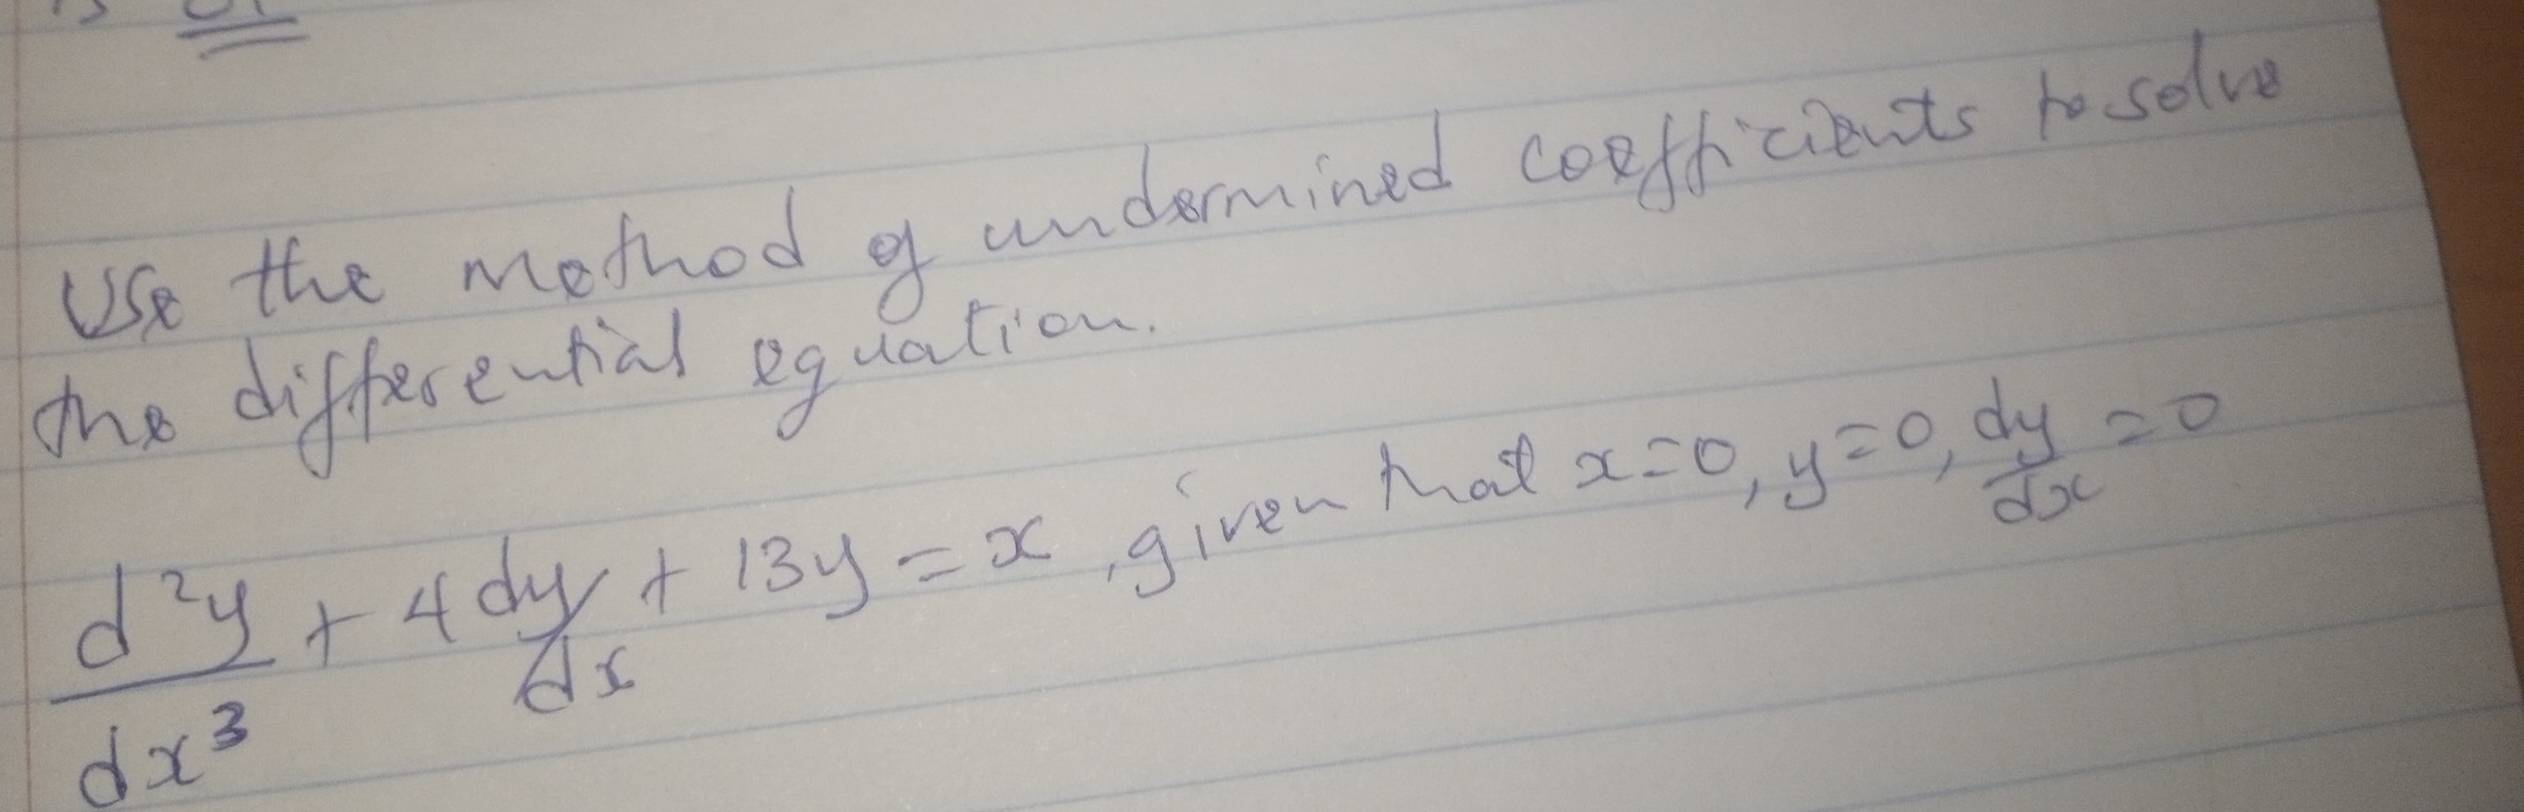 Use the method of undermined coefficients to solve
the differential equation.
d²y/dx³ + 4dy/dx + 13y = x, given that x=0, y=0, dy/dx = 0